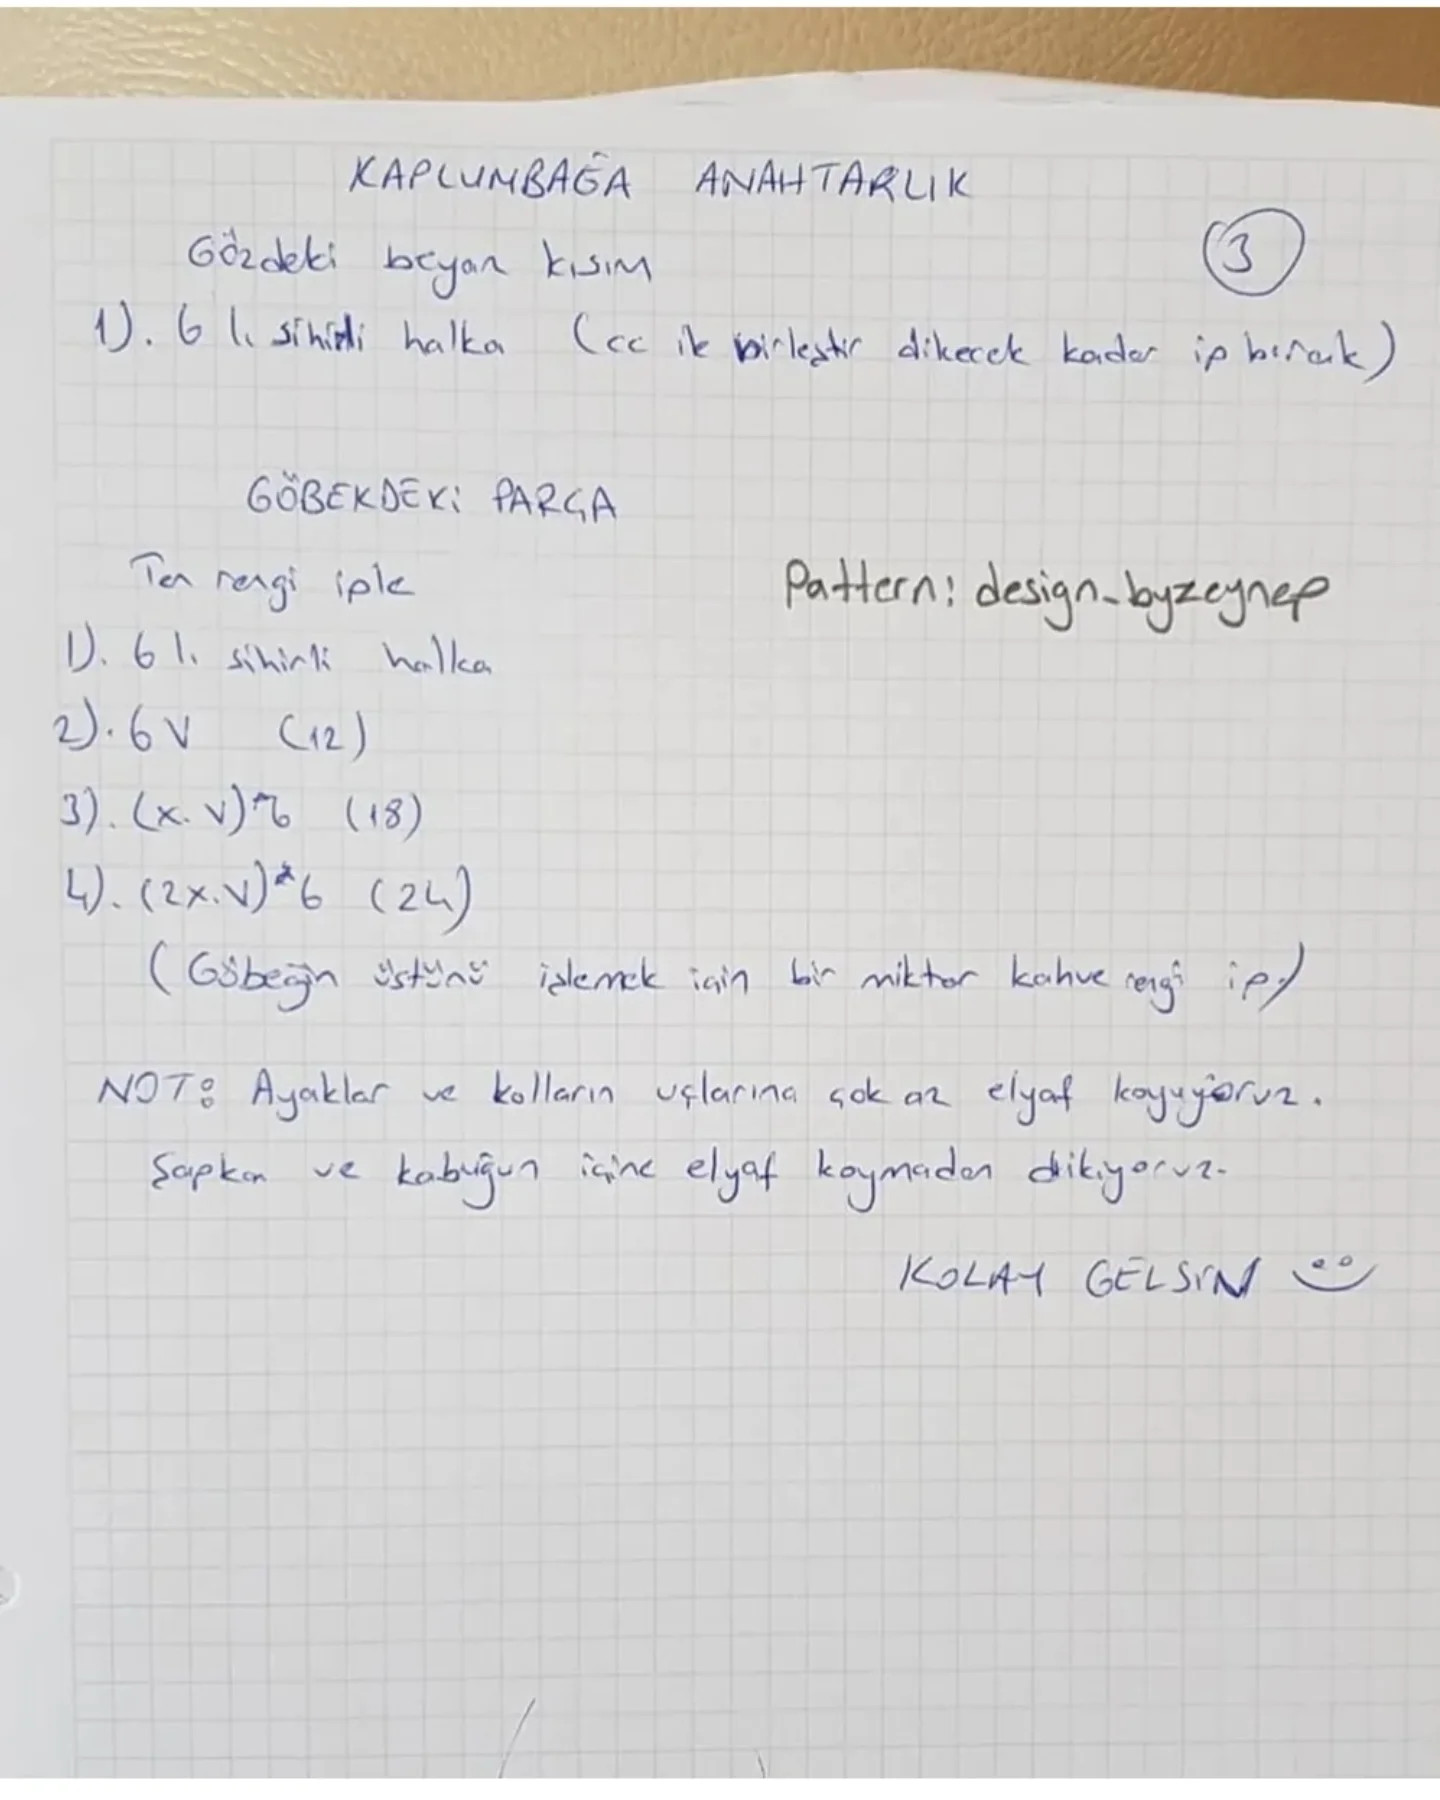 KAPLUMBAĞA ANAHTARLIK
3
Gözdeki beyaz kısım
1). 6 lı sihirli halka (cc ile birleştir dikecek kadar ip bırak)
GÖBEKDEKİ PARÇA
Ten rengi iple
Pattern: design_byzeynep
1). 6 lı sihirli halka
2). 6 V (12)
3). (x. V)*6 (18)
4). (2x. V)*6 (24)
(Göbeğin üstünü işlemek için bir miktar kahve rengi ip.)
NOT: Ayaklar ve kolların uçlarına çok az elyaf koyuyoruz.
Şapka ve kabuğun içine elyaf koymadan dikiyoruz.
KOLAY GELSİN